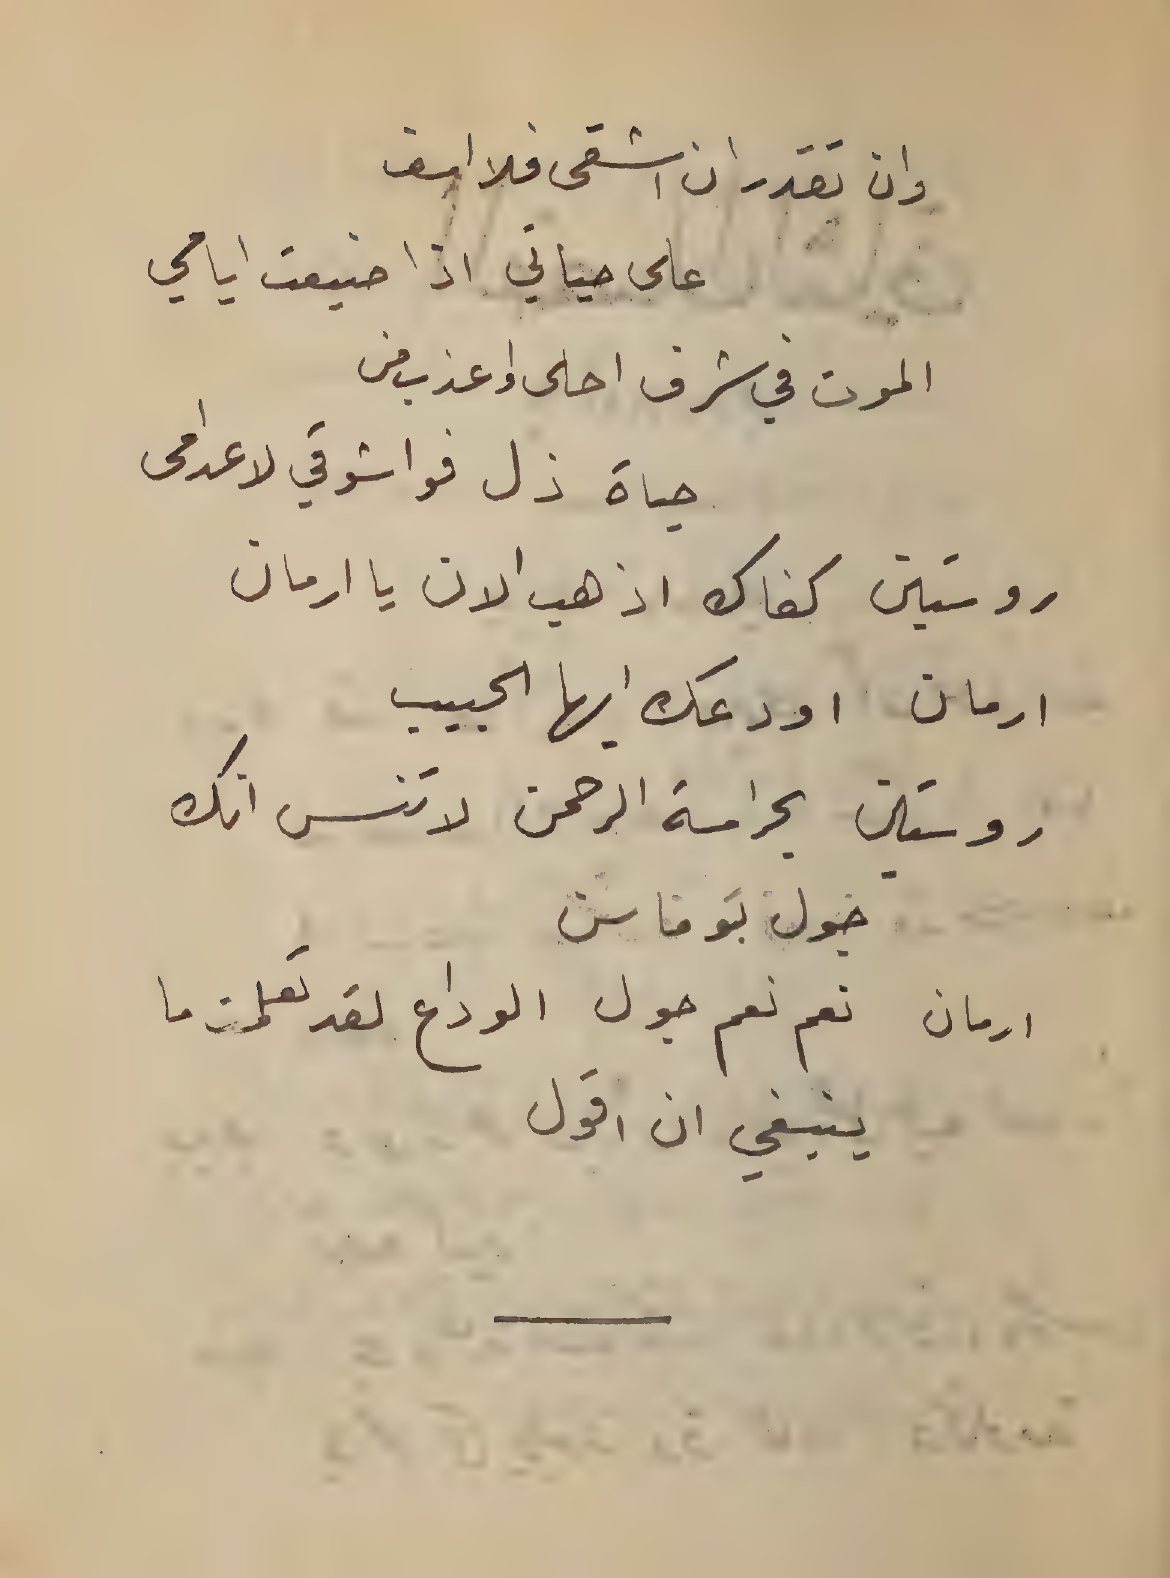 وان تقدر ان اشقى فلا اسف
على حياتي اذا ضيعت ايامي
الموت في شرف احلى واعذب من
حياة ذل فواشوقي لاعدامى
روستين كفاك اذهب الان يا ارمان
ارمان اودعك ايها الحبيب
روستين بحرامة الرحمن لا تنس انك
جول بوفاسن
ارمان نعم نعم جول الوداع لقد تعلمت ما
ينبغي ان اقول